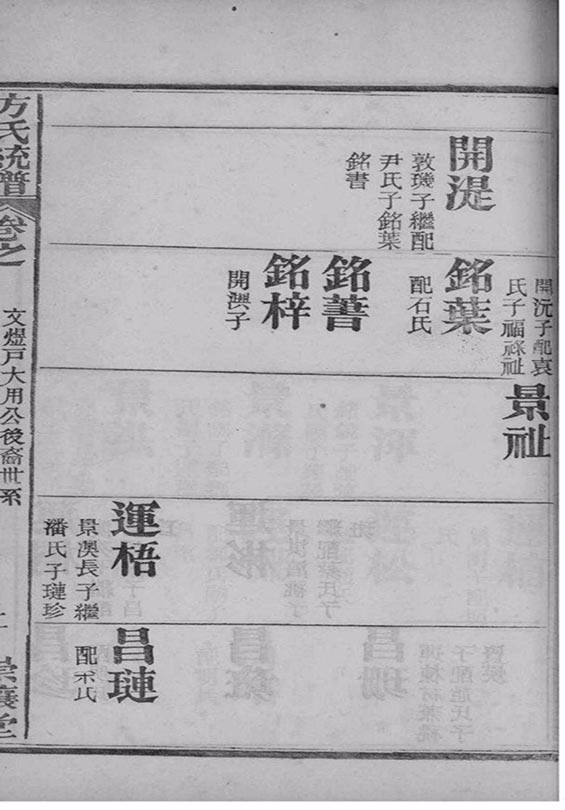 開湜
敦璣子繼配
尹氏子銘葉
銘書
開沅子配袁
氏子福祿祉
銘葉
配石氏
銘菩
銘梓
開澳子
景祉
運梧
景澳長子繼
潘氏子璉珍
昌璉
配
氏
方氏統譜
卷之
文煜戶大用公後裔世系
崇讓堂